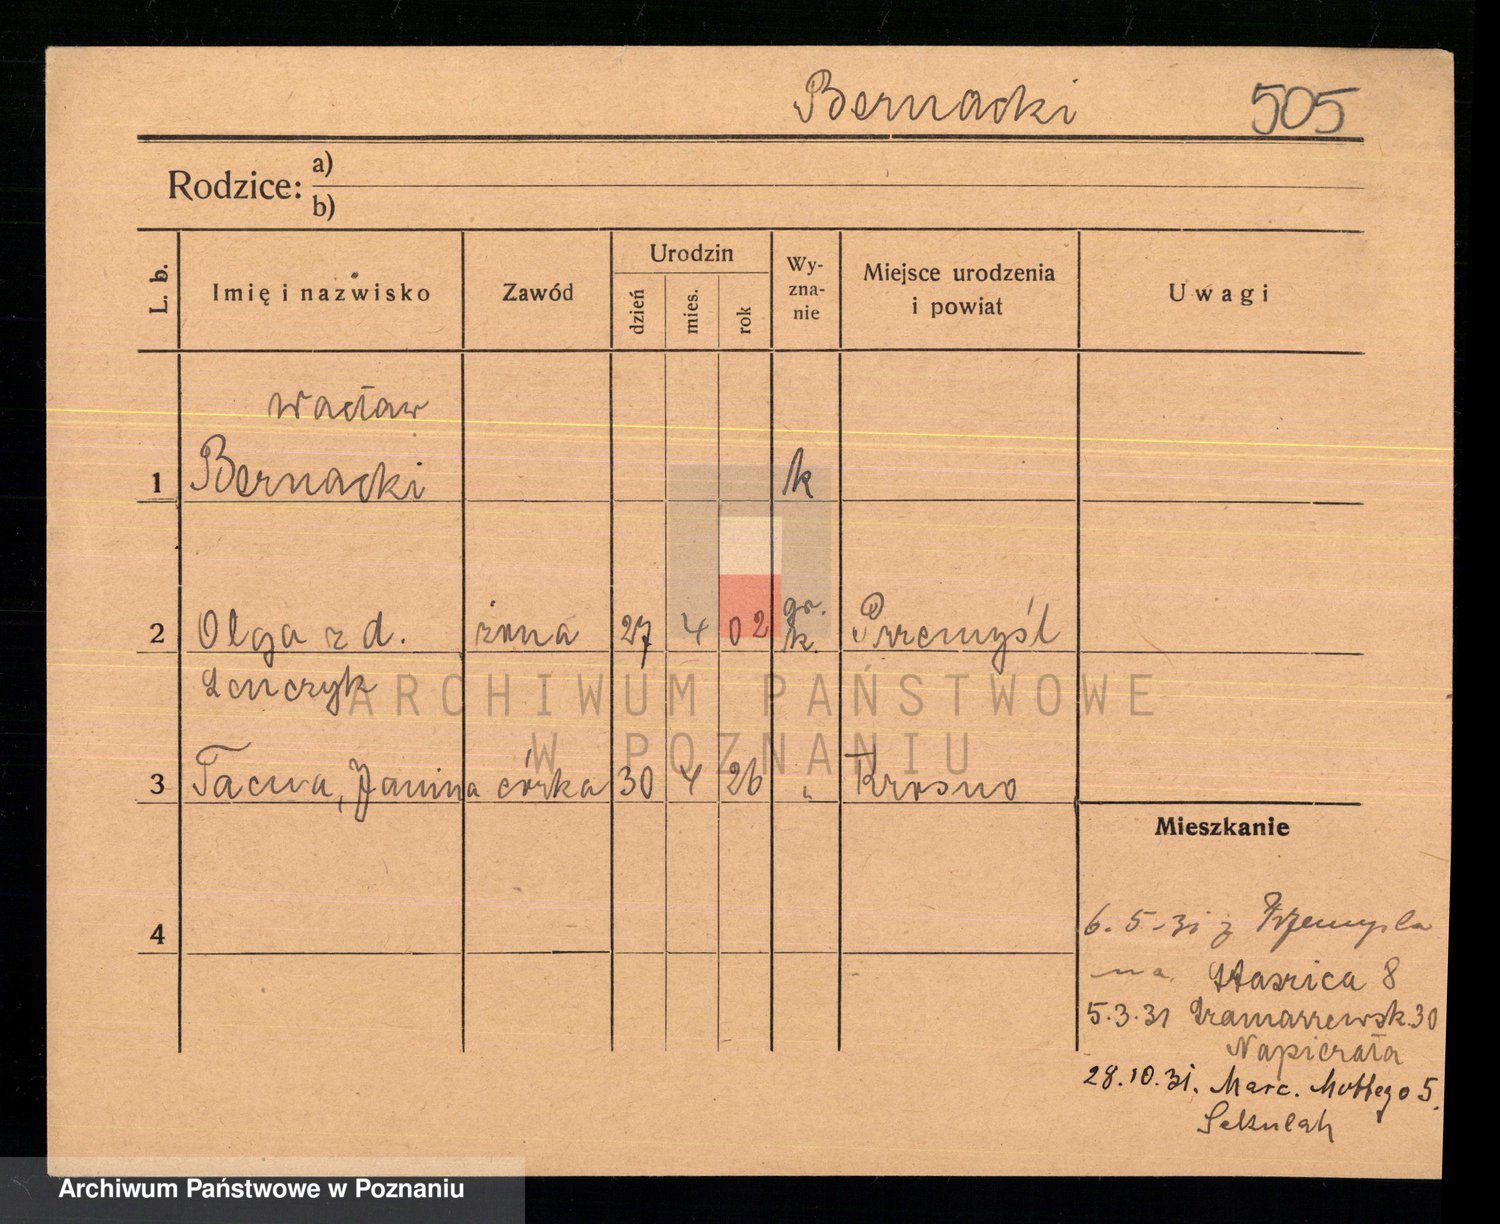 Bernacki 505
Rodzice: a)
b)
L. b. Imię i nazwisko Zawód Urodzin dzień mies. rok Wy-zna-nie Miejsce urodzenia i powiat Uwagi
Wacław
1 Bernacki k
2 Olga z d. żona 27 4 02 gr. k. Przemyśl
Lenczyk
3 córka 30 4 26 " Krosno
Mieszkanie
4
6.5.31 z Przemyśla
na Staszica 8
5.3.31 30
Napierała
28.10.31. Marc. Mottego 5.
Sekulak
ARCHIWUM PAŃSTWOWE
W POZNANIU
Archiwum Państwowe w Poznaniu